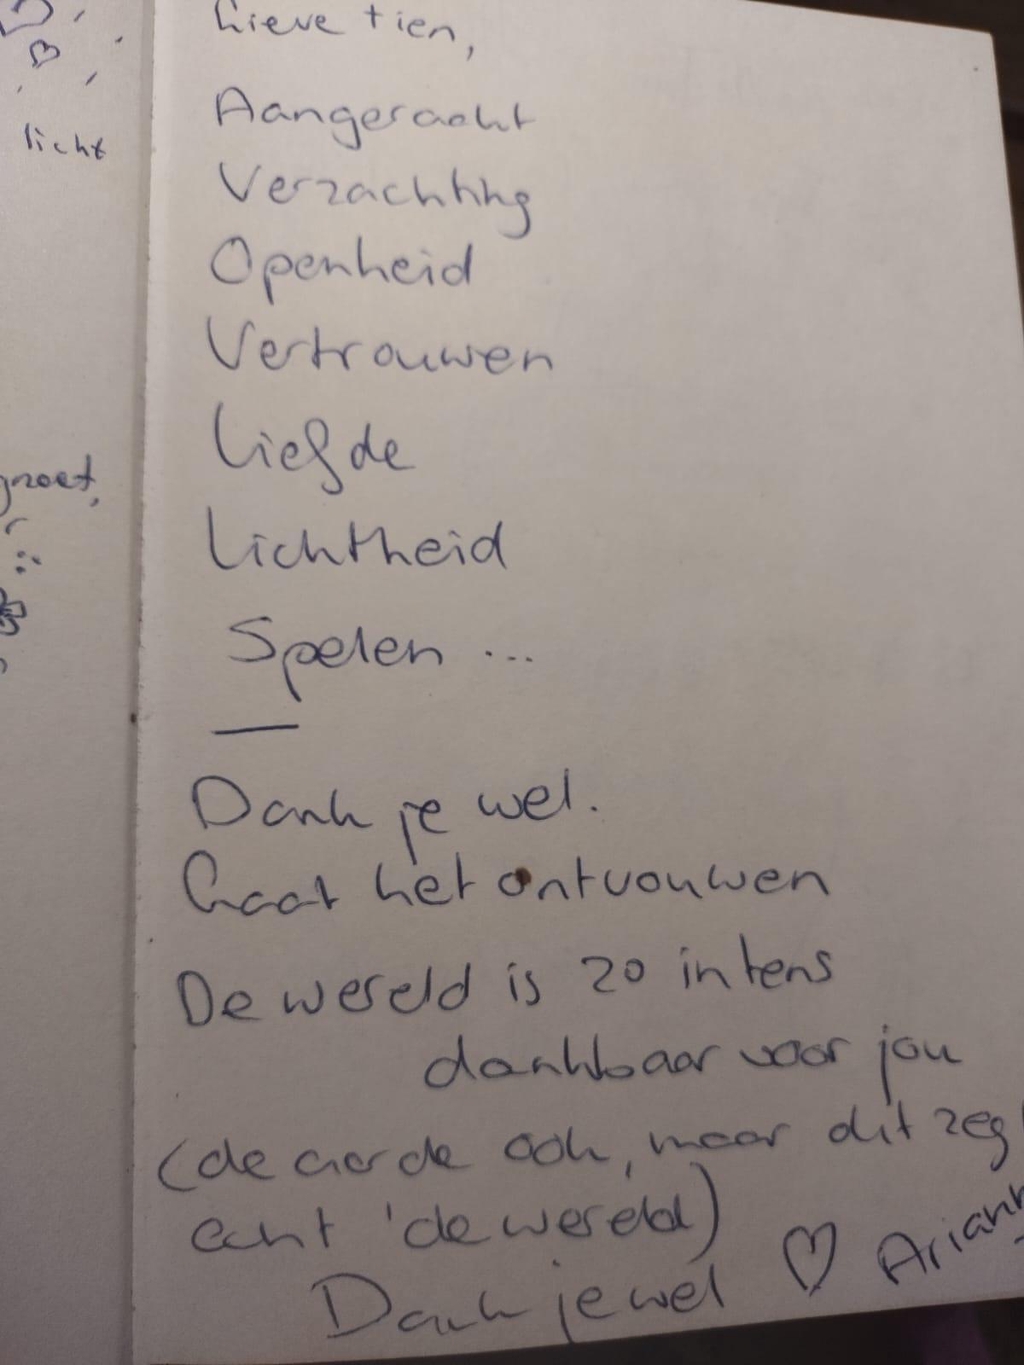 licht
groet,
Lieve tien,
Aangeraakt
Verzachting
Openheid
Vertrouwen
Liefde
Lichtheid
Spelen ...
Dank je wel.
Gaat het ontvouwen
De wereld is zo intens
dankbaar voor jou
(de aarde ook, maar dit zegt
echt 'de wereld)
Dank je wel ♡ Ariann